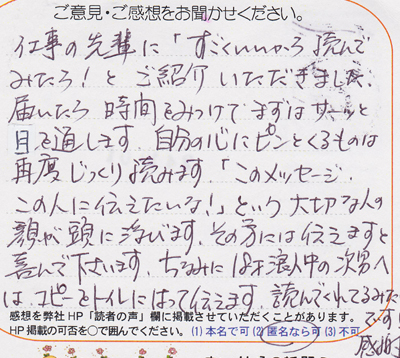 ご意見・ご感想をお聞かせください。
仕事の先輩に「すごくいいから読んで
みたら！とご紹介いただきました。
届いたら時間をみつけてまずはサーッと
目を通します。自分の心にピンとくるものは
再度じっくり読みます。「このメッセージ、
この人に伝えたいな！」という大切な人の
顔が頭に浮びます。その方には伝えますと
喜んで下さいます。ちなみに18才浪人中の次男へ
は、コピーをトイレにはって伝えます。読んでくれてるみた
です!
感想を弊社HP「読者の声」欄に掲載させていただくことがあります。
HP掲載の可否を○で囲んでください。(1) 本名で可 (2) 匿名なら可 (3) 不可
感謝